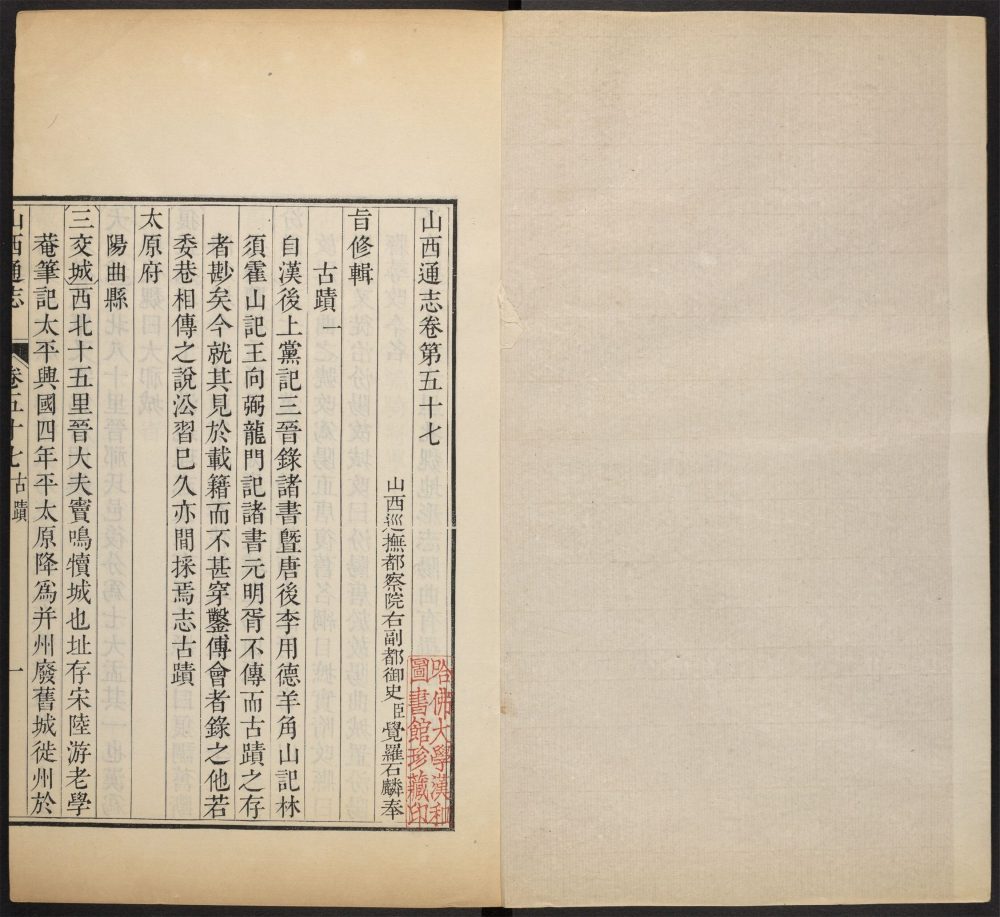 山西通志卷第五十七
山西巡撫都察院右副都御史臣覺羅石麟奉
旨修輯
古蹟一
自漢後上黨記三晉錄諸書暨唐後李用德羊角山記林
須霍山記王向弼龍門記諸書元明胥不傳而古蹟之存
者尠矣今就其見於載籍而不甚穿鑿傅會者錄之他若
委巷相傳之說沿習已久亦間採焉志古蹟
太原府
陽曲縣
三交城西北十五里晉大夫竇鳴犢城也址存宋陸游老學
菴筆記太平興國四年平太原降爲并州廢舊城徙州於
山西通志 卷五十七古蹟 一
哈佛大學漢和
圖書館珍藏印